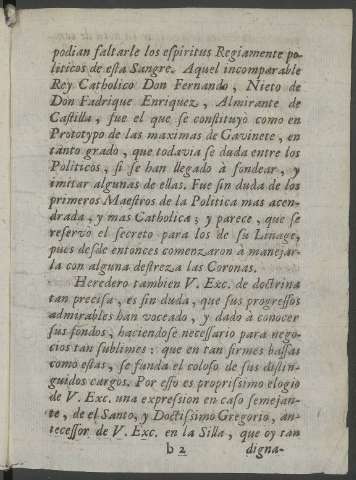 podian faltarle los eſpiritus Regiamente po-
liticos de eſta Sangre. Aquel incomparable
Rey Catholico Don Fernando, Nieto de
Don Fadrique Enriquez, Almirante de
Caſtilla, fue el que se conſtituyò como en
Prototypo de las maximas de Gavinete, en
tanto grado, que todavia se duda entre los
Politicos, si se han llegado à fondear, y
imitar algunas de ellas. Fue sin duda de los
primeros Maeſtros de la Politica mas acen-
drada, y mas Catholica; y parece, que se
reservò el secreto para los de su Linage,
pues deſde entonces comenzaron à manejar-
la con alguna deſtreza las Coronas.
Heredero tambien V. Exc. de doctrina
tan preciſa, es sin duda, que sus progreſſos
admirables han voceado, y dado à conocer
sus fondos, haciendose neceſſario para nego-
cios tan sublimes: que en tan firmes baſſas
como eſtas, se funda el coloſo de sus diſtin-
guidos cargos. Por eſſo es propriſsimo elogio
de V. Exc. una expreſsion en caſo semejan-
te, de el Santo, y Doctiſsimo Gregorio, an-
teceſſor de V. Exc. en la Silla, que oy tan
b 2 digna-